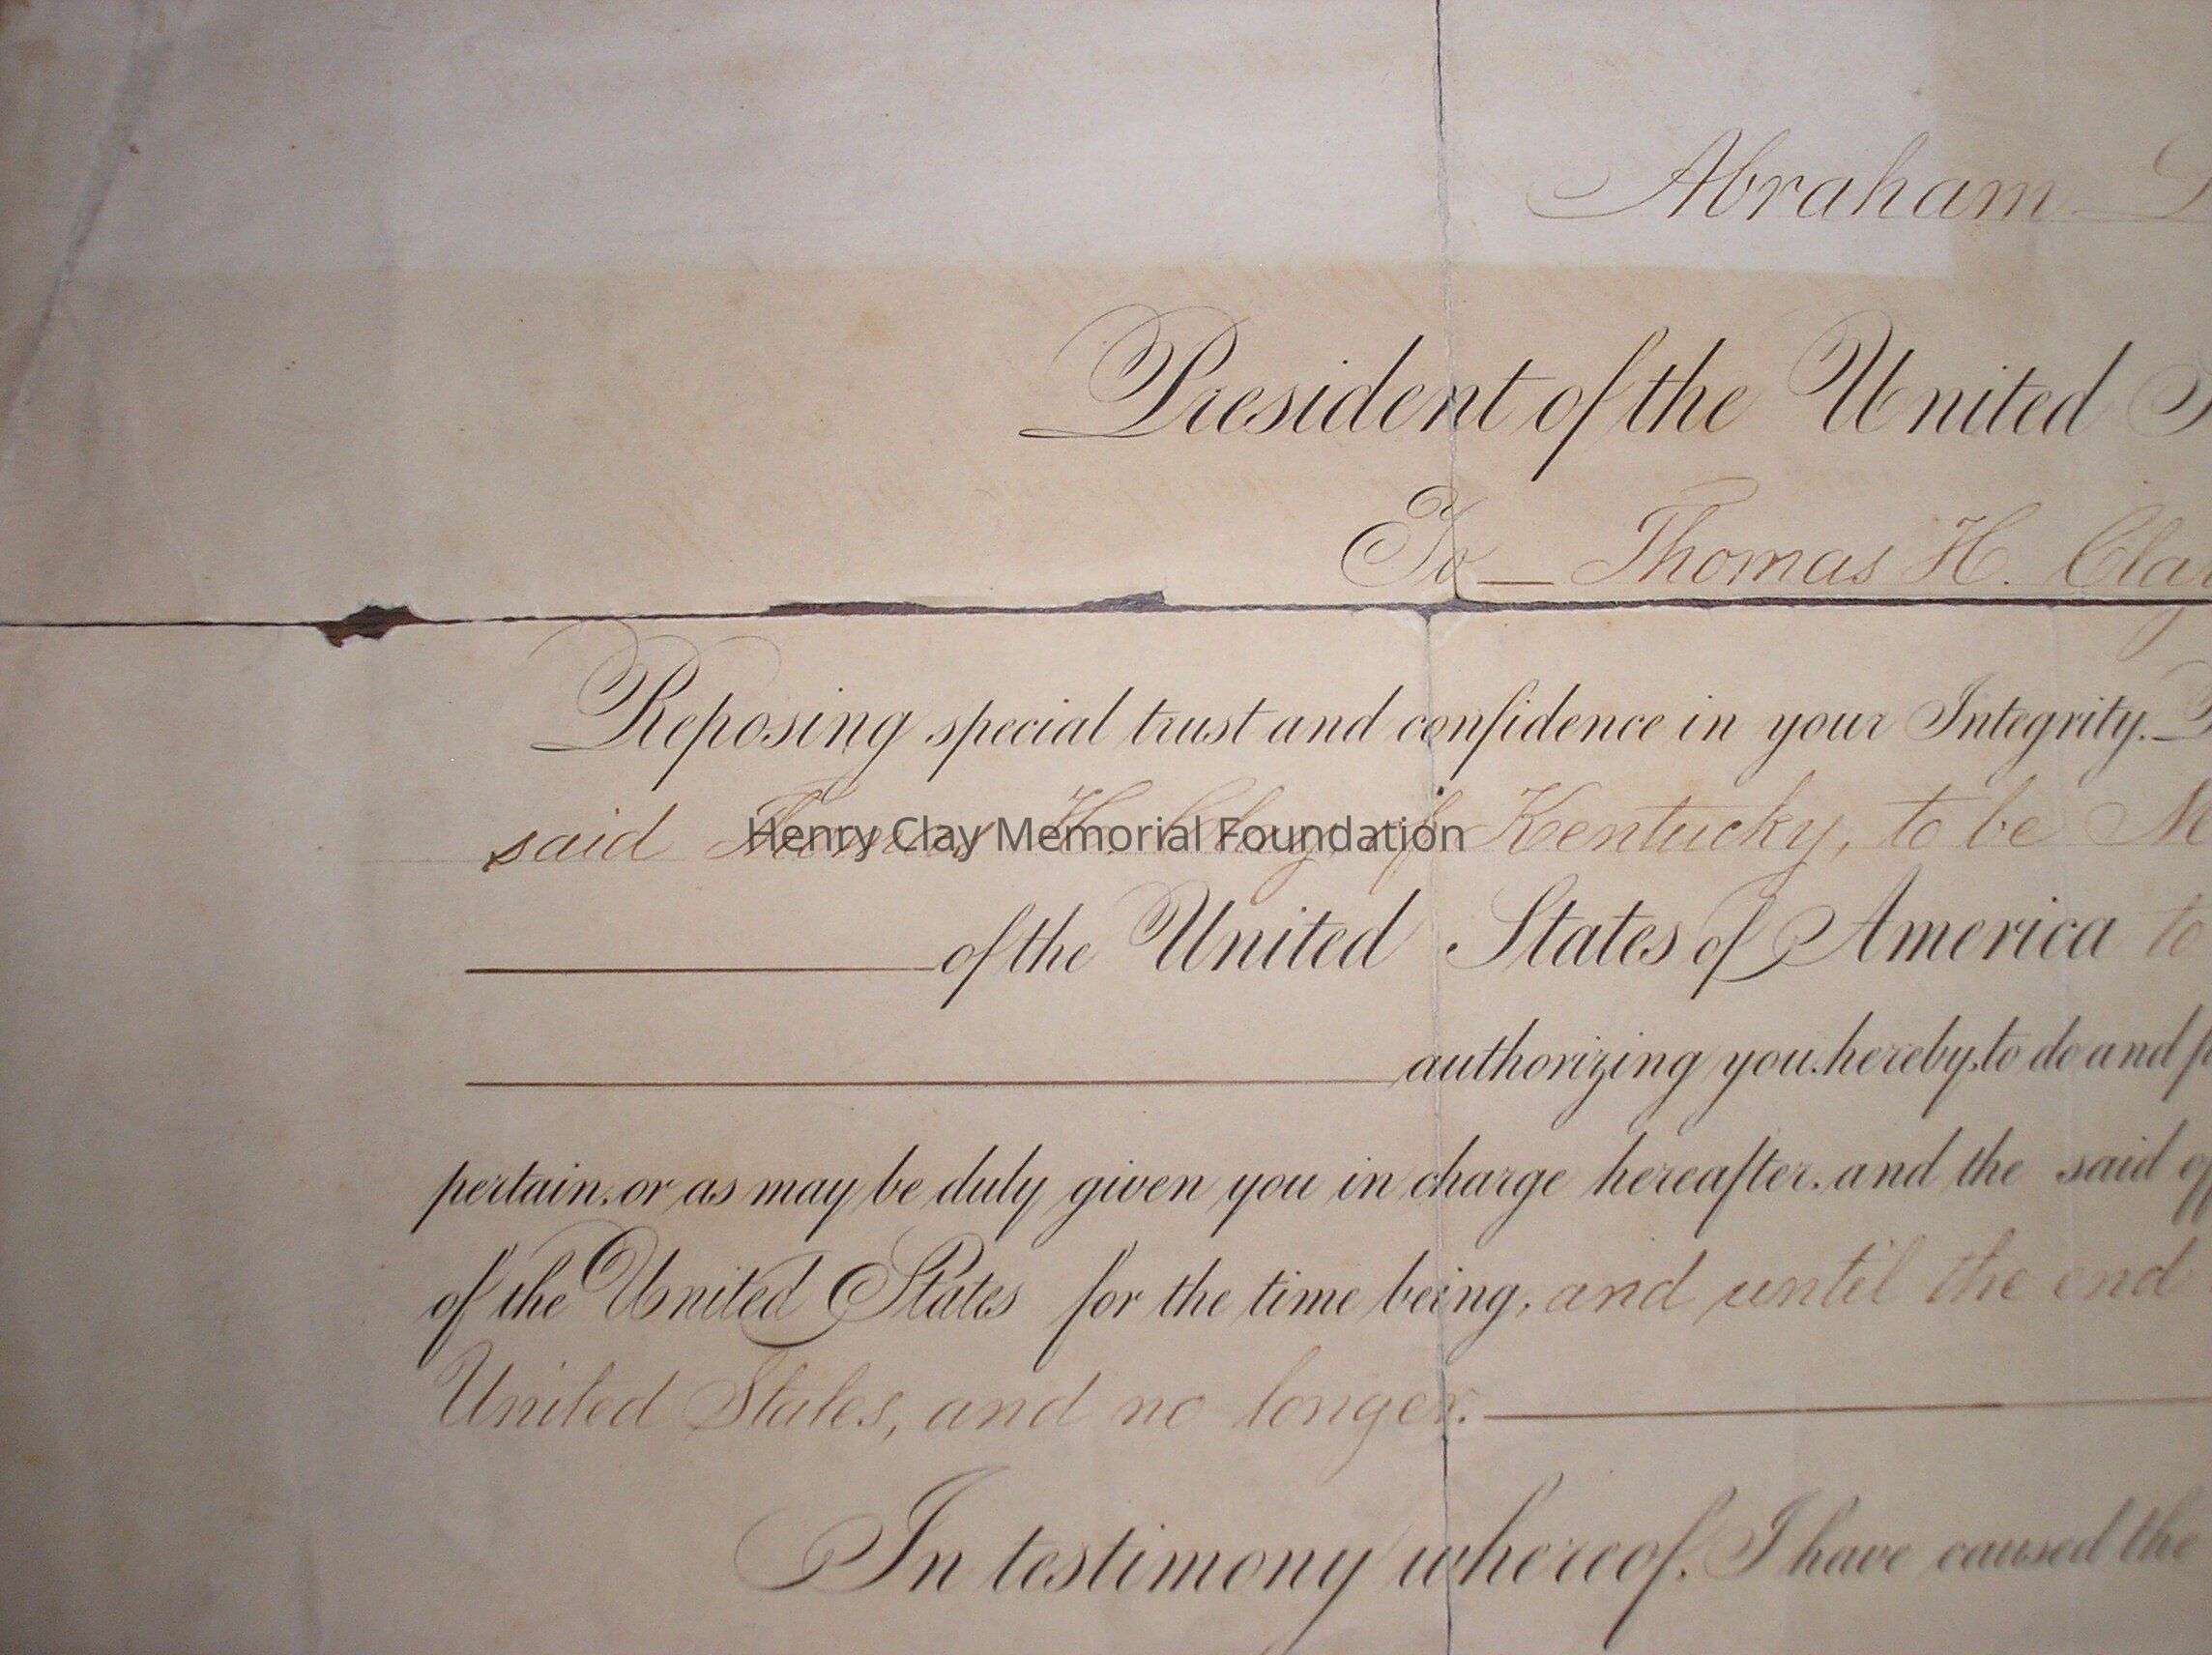 Abraham
President of the United
To Thomas H. Clay
Reposing special trust and confidence in your Integrity.
said Thomas H. Clay, of Kentucky, to be
Henry Clay Memorial Foundation
of the United States of America to
authorizing you, hereby, to do and
pertain, or as may be duly given you in charge hereafter, and the said
of the United States for the time being, and until the end
United States, and no longer.
In testimony whereof, I have caused the